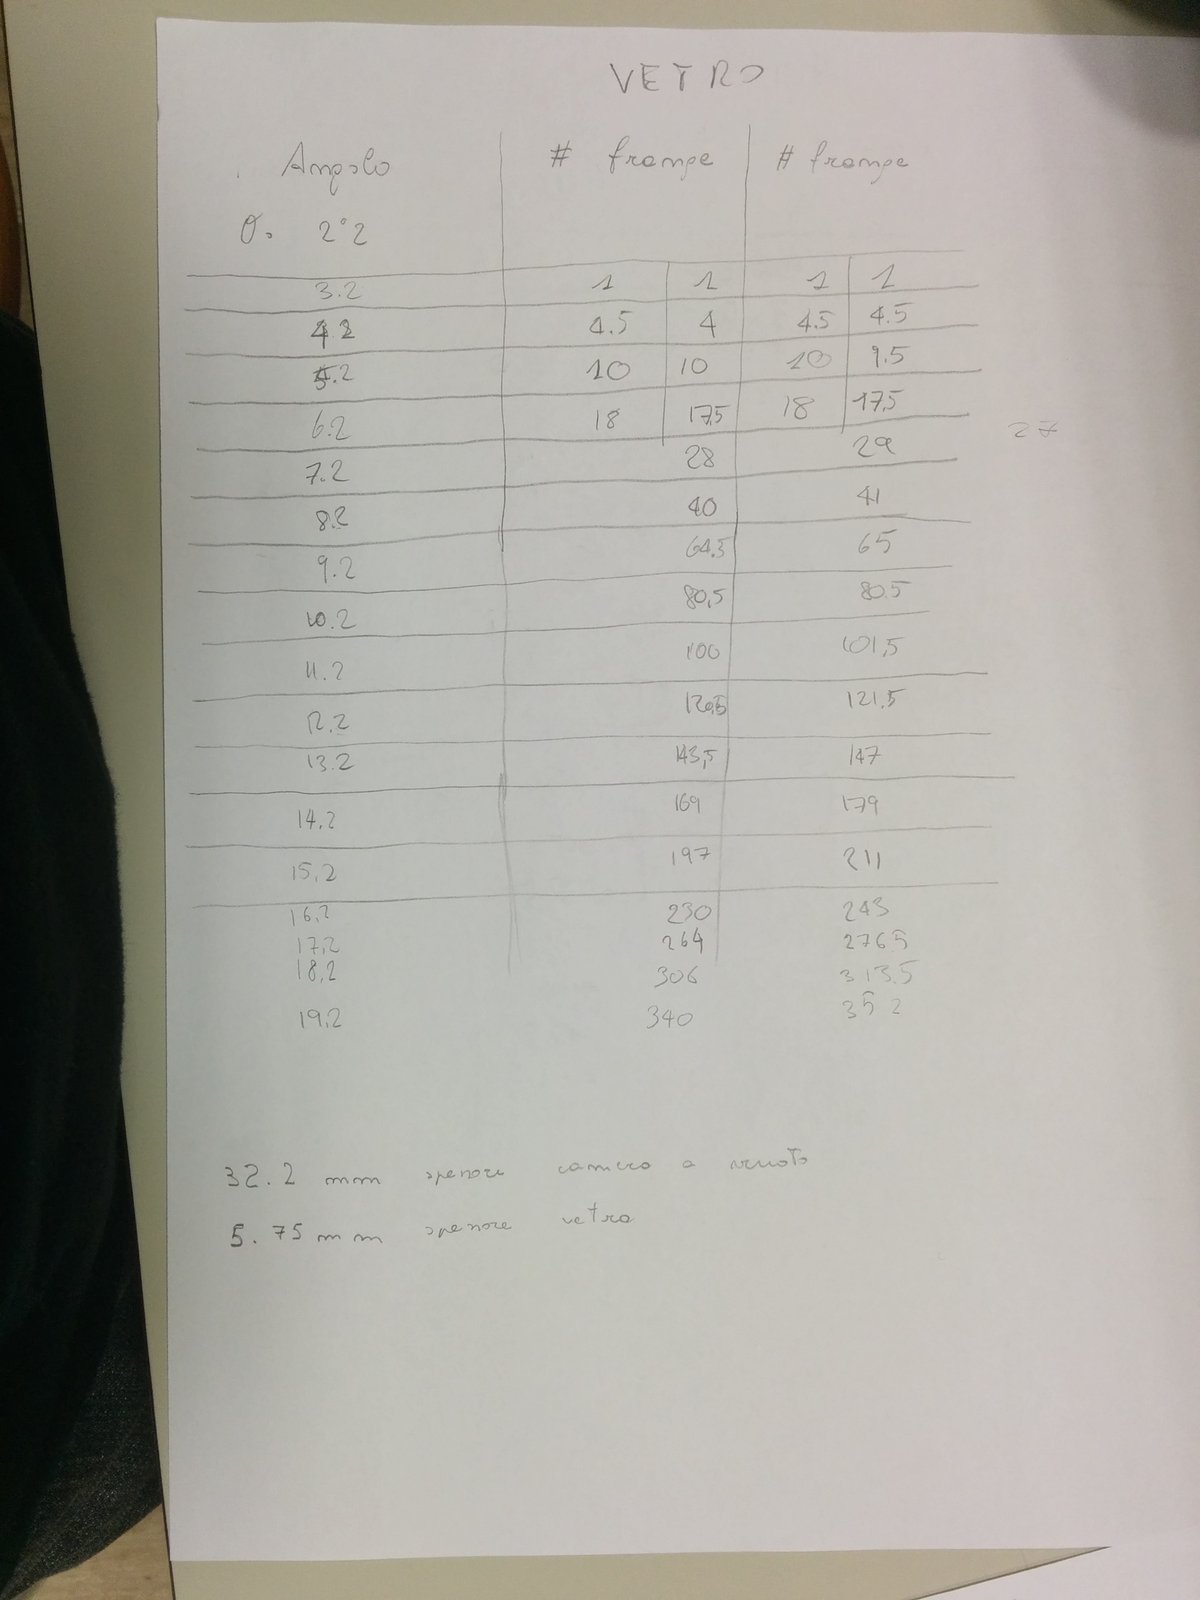 VETRO
Angolo # frange # frange
θ. 2°2
3.2 1 1 1 1
4.2 4.5 4 4.5 4.5
5.2 10 10 10 9.5
6.2 18 17,5 18 17,5
27
7.2 28 29
8.2 40 41
9.2 64.5 65
10.2 80,5 80.5
11.2 100 101,5
12.2 120,5 121,5
13.2 143,5 147
14.2 169 179
15,2 197 211
16,2 230 243
17,2 264 276.5
18,2 306 313.5
19,2 340 352
32.2 mm spessore camera a vuoto
5.75 mm spessore vetro